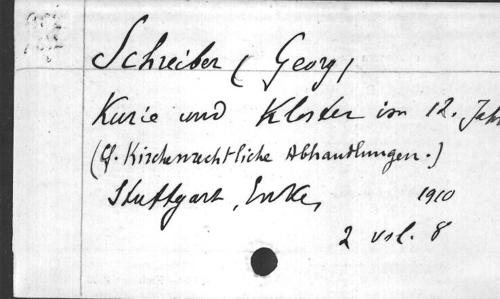 Schreiber (Georg)
Kurie und Kloster im 12. Jah
(Cf. Kirchenrechtliche Abhandlungen.)
Stuttgart, Enke, 1910
2 vol. 8